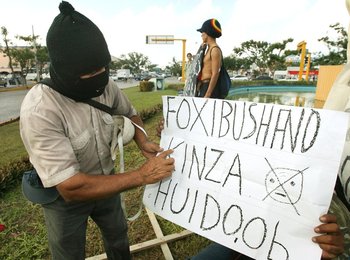 FOXIBUSHAND
KINZA
HUIDO,06